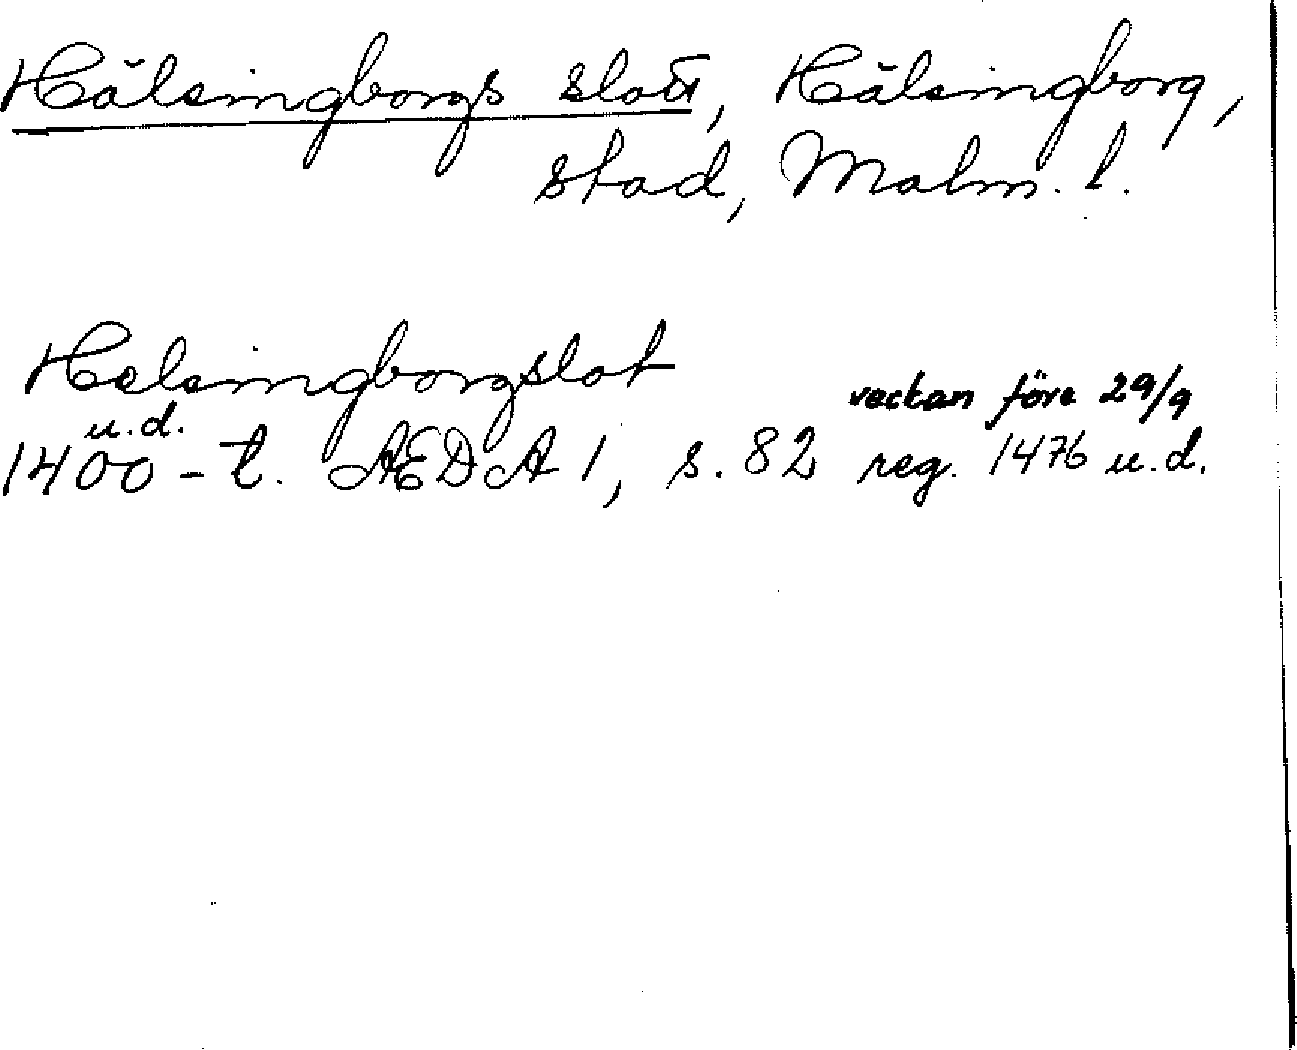 Hälsingborgs slott, Hälsingborg,
stad, Malm. l.
Helsingborgslot
veckan före 29/9
u.d.
1400-t. AEDA 1, s. 82 reg. 1476 u.d.